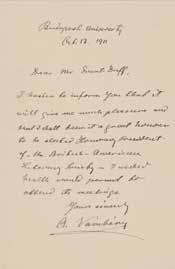 Budapest University
Oct. 17, 1911
Dear Mr. Grant Duff,
I hasten to inform you that it
will give me much pleasure and
that I shall deem it a great honour
to be elected Honorary President
of the British-American
Literary Society — I wished
health would permit to
attend its meetings.
Yours sincerely
A. Vambéry